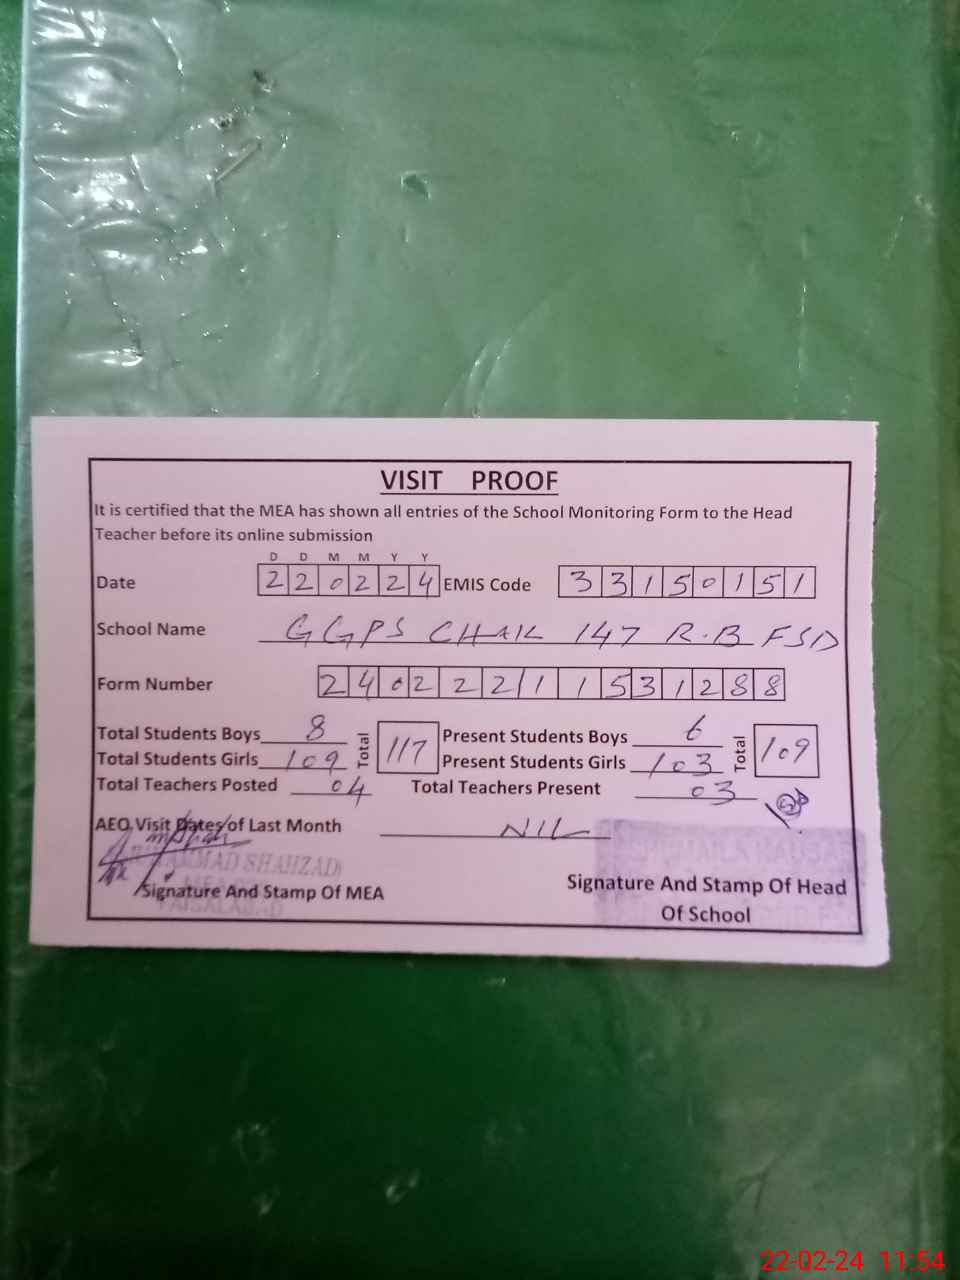 VISIT PROOF
It is certified that the MEA has shown all entries of the School Monitoring Form to the Head
Teacher before its online submission
D D M M Y Y
Date 220224 EMIS Code 33150151
School Name GGPS CHAK 147 R.B FSD
Form Number 240222211531288
Total Students Boys 8 Total 117 Present Students Boys 6 Total 109
Total Students Girls 109 Present Students Girls 103
Total Teachers Posted 04 Total Teachers Present 03
AEO Visit Dates of Last Month NIL
MUHAMMAD SHAHZAD
Signature And Stamp Of MEA
FAISALABAD
Signature And Stamp Of Head
Of School
22-02-24 11:54